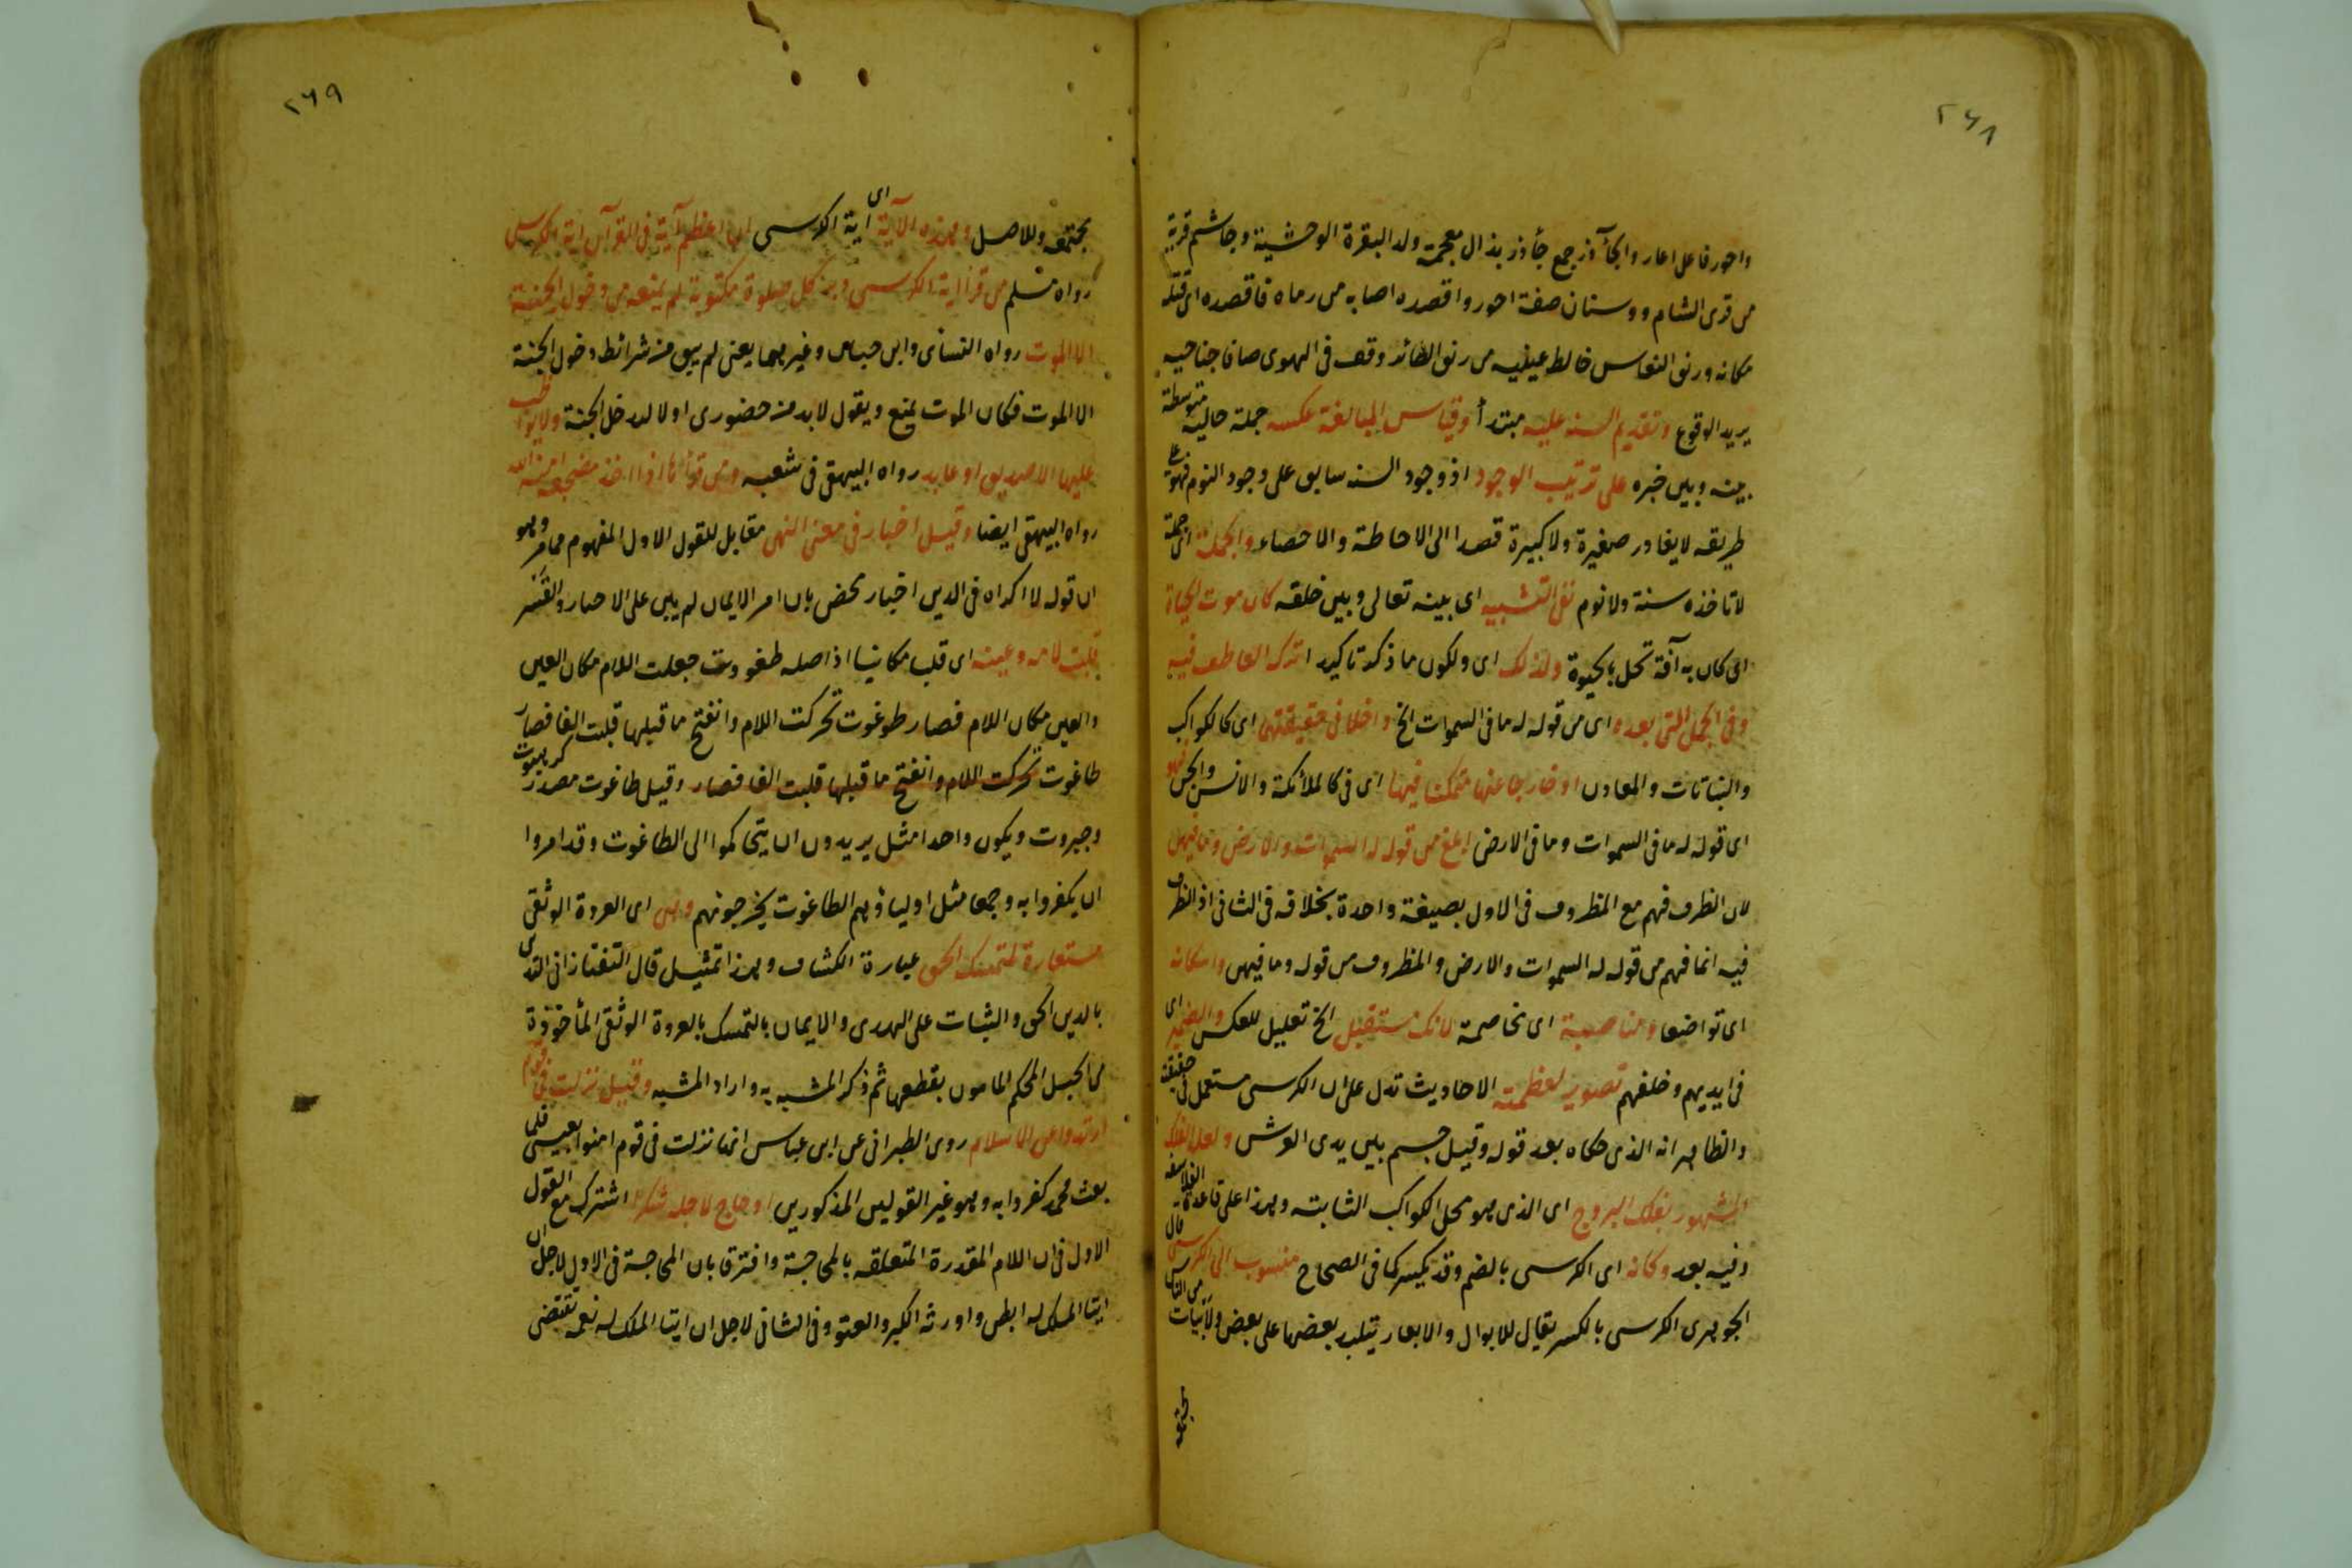 ٢٦٨
واحور فاعل اعار والجآذر جمع جأذر بذال معجمة ولد البقرة الوحشية وجاسم قرية
من قرى الشام ووسنان صفة احور واقصده اصابه من رماه فاقصده اى قتله
مكانه ورنق النعاس خالط عينيه من رنق الطائر وقف فى الهوى صافا جناحيه
يريد الوقوع وتقديم السنه عليه مبتدأ وقياس المبالغة عكسه جملة حالية متوسطة
بينه وبين خبره على ترتيب الوجود اذ وجود السنه سابق على وجود النوم فهو على
طريقه لا يغادر صغيرة ولا كبيرة قصدا الى الاحاطة والاحصاء والجملة اى جملة
لا تاخذه سنة ولا نوم نفى التشبيه اى بينه تعالى وبين خلقه كان موت الحياة
اى كان به آفة تحل بالحيوة ولذلك اى ولكون ما ذكر تاكيدا ترك العاطف فيه
وفى الجمل التى بعده اى من قوله له ما فى السموات الخ داخلا فى حقيقتهما اى كالكواكب
والنباتات والمعادن او خارجا عنهما متمكنا فيهما اى فى كالملائكة والانس والجن فهو
اى قوله له ما فى السموات وما فى الارض ابلغ من قوله له السموات والارض وما فيهن
لان الظرف فهم مع المظروف فى الاول بصيغة واحدة بخلافه فى الثانى اذ الظرف
فيه انما فهم من قوله له السموات والارض والمظروف من قوله وما فيهن واستكانة
اى تواضعا ومناصبة اى مخاصمة لانك مستقبل الخ تعليل للعكس والضمير اى
فى ايديهم وخلفهم تصوير لعظمته الاحاديث تدل على ان الكرسى مستعمل فى حقيقته
والظاهر انه الذى حكاه بعد قوله وقيل جسم بين يدى العرش ولعله الفلك
المشهور بفلك البروج اى الذى هو محل الكواكب الثابته وهذا على قاعدة الفلاسفة
وفيه بعد وكانه اى الكرسى بالضم وقد يكسر كما فى الصحاح منسوب الى الكرسى قال
الجوهرى الكرسى بالكسر يقال للابوال والابعار يتلبد بعضها على بعض ولابيات من الناس
مجتمعة
٢٦٩
مجتمعه وللاصل وهذه الآية اى آية الكرسى ان اعظم آية فى القرآن اية الكرسى
رواه مسلم من قرأ اية الكرسى دبر كل صلوة مكتوبة لم يمنعه من دخول الجنة
الا الموت رواه النسائ وابن حباس وغيرهما يعنى لم يبق من شرائط دخول الجنة
الا الموت فكان الموت يمنع ويقول لا بد من حضورى اولا لدخل الجنة ولا يواظب
عليها الا صديق او عابد رواه البيهقى فى شعبه ومن قرأها اذا اخذ مضجعه امنه الله
رواه البيهقى ايضا وقيل اخبار فى معنى النهى مقابل للقول الاول المفهوم مما مر وهو
ان قوله لا اكراه فى الدين اخبار محض بان امر الايمان لم يبن على الاحبار والقسر
قلبت لامه وعينه اى قلبا مكانيا اذ اصله طغووت جعلت اللام مكان العين
والعين مكان اللام فصار طوغوت تحركت اللام وانفتح ما قبلها قلبت الفا فصار
طاغوت تحركت اللام وانفتح ما قبلها قلبت الفا فصار وقيل طاغوت مصدر كرهبوت
وجبروت ويكون واحدا مثل يريدون ان يتحاكموا الى الطاغوت وقد امروا
ان يكفروا به وجمعا مثل اولياؤهم الطاغوت يخرجونهم وهى اى العروة الوثقى
مستعارة لمتمسك الحق عبارة الكشاف وهذا تمثيل قال التفتازانى التدى
بالدين الحق والثبات على الهدى والايمان بالتمسك بالعروة الوثقى المأخوذة
من الحبل المحكم المامون بقطعها ثم ذكر المشبه به واراد المشبه وقيل نزلت فى قوم
ارتدوا عن الاسلام روى الطبرانى عن ابن عباس انما نزلت فى قوم امنوا بعيسى فلما
بعث محمد كفروا به وهو غير القولين المذكورين او حاج لاجله شكرا اشترك مع القول
الاول فى ان اللام المقدرة المتعلقه بالمحاجة وافترق بان المحاجة فى الاول لاجل ان
ايتا الملك له ابطر واورثه الكبر والعتو وفى الثانى لاجل ان ايتا الملك له نعمة تقتضى